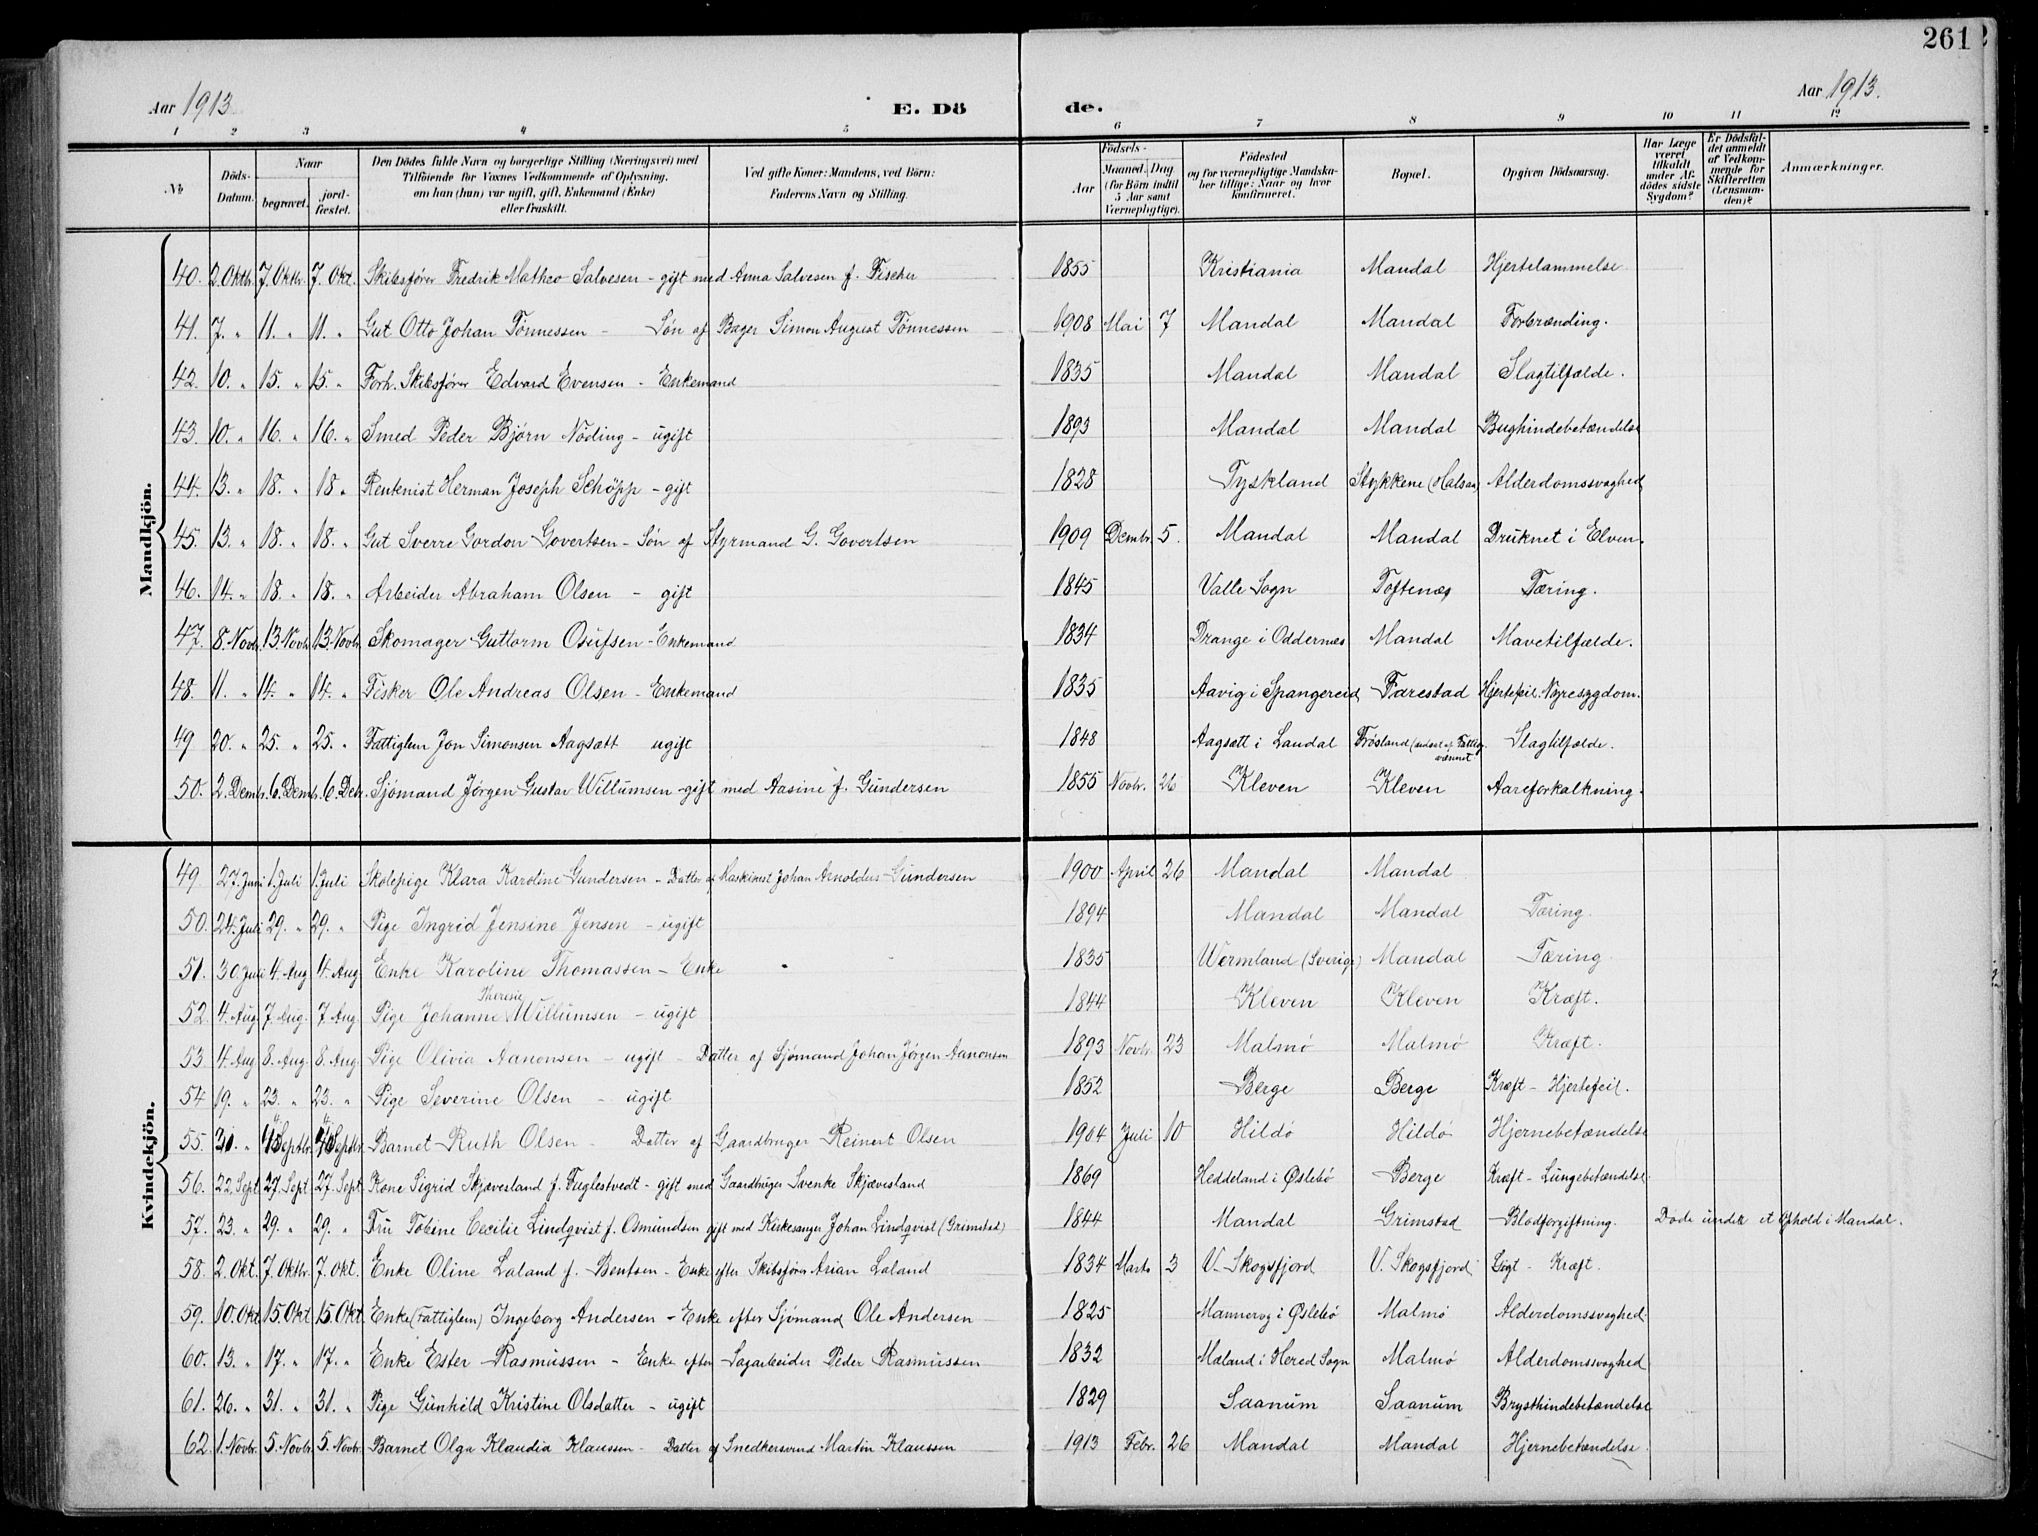 261
Aar 1913. E. Dö de. Aar 1913.
1 2 3 4 5 6 7 8 9 10 11 12
No
Döds-Datum.
Naar
begravet.
jord-fæstet.
Den Dödes fulde Navn og borgerlige Stilling (Næringsvei) med
Tilföiende for Voxnes Vedkommende af Oplysning,
om han (hun) var ugift, gift, Enkemand (Enke)
eller fraskilt.
Ved gifte Koner: Mandens, ved Börn:
Faderens Navn og Stilling.
Födsels-
Aar
Maaned. Dag
(for Börn indtil
5 Aar samt
Værnepligtige).
Födested
og for værnepligtige Mandskaber tillige: Naar og hvor
konfirmeret.
Bopæl.
Opgiven Dödsaarsag.
Har Læge
været
tilkaldt
under Afdödes sidste
Sygdom?
Er Dödsfaldet anmeldt
af Vedkommende for
Skifteretten
(Lensmanden)?
Anmærkninger.
Mandkjön.
40. 2. Oktbr. 7. Oktbr. 7. Okt. Skibsfører Fredrik Matheo Salvesen - gift med Anna Salvesen f. Fischer 1855 Kristiania Mandal Hjertelammelse
41. 7. " 11. " 11. " Gut Otto Johan Tønnessen - Søn af Bager Simon August Tønnessen 1908 Mai 7 Mandal Mandal Forbrænding.
42. 10. " 15. " 15. " Forh. Skibsfører Edvard Evensen - Enkemand 1835 Mandal Mandal Slagtilfælde.
43. 10. " 16. " 16. " Smed Peder Bjørn Nøding - ugift 1893 Mandal Mandal Bughindebetændelse
44. 13. " 18. " 18 " Rentenist Herman Joseph Schöpp - gift 1828 Tyskland Stykkene (Halsaa) Alderdomssvaghed
45. 13. " 18. " 18. " Gut Sverre Gordon Govertsen - Søn af Styrmand G. Govertsen 1909 Dembr. 5. Mandal Mandal Druknet i Elven.
46. 14. " 18. " 18. " Arbeider Abraham Olsen - gift 1845 Valle Sogn Toftenes Tæring.
47. 8. Novbr. 13. Novbr. 13. Novbr. Skomager Guttorm Osufsen - Enkemand 1834 Drange i Oddernes Mandal Mavetilfælde.
48. 11. " 14. " 14. " Fisker Ole Andreas Olsen - Enkemand 1835 Aavig i Spangereid Farestad Hjertefeil. Nyresygdom.
49 20. " 25. " 25. " Fattiglem Jon Simonsen Aagsætt ugift 1848 Aagsætt i Laudal Frøsland (underst. af Fattigvæsnet Slagtilfælde.
50. 2. Dembr. 6. Dembr. 6. Debr. Sjømand Jørgen Gustav Willumsen - gift med Aasine f. Gundersen 1855 Novbr. 26 Kleven Kleven Aareforkalkning.
Kvindekjön.
49 27. Juni 1. Juli 1. Juli Skolepige Klara Karoline Gundersen - Datter af Maskinist Johan Arnoldus Gundersen 1900 April 26 Mandal Mandal
50. 24. Juli 29. " 29. " Pige Ingrid Jensine Jensen - ugift 1894 Mandal Mandal Tæring.
51. 30 Juli 4. Aug 4. Aug Enke Karoline Thomassen - Enke 1835 Wermland (Sverige) Mandal Tæring.
52. 4. Aug 7. Aug. 7. Aug Pige Johanne Therese Willumsen - ugift 1844 Kleven Kleven Kræft.
53 4. Aug 8. Aug 8. Aug. Pige Olivia Aanonsen - ugift - Datter af Sjømand Johan Jørgen Aanonsen 1893 Novbr. 23 Malmø Malmø Kræft.
54 19. " 23. " 23. " Pige Severine Olsen - ugift 1852 Berge Berge Kræft - Hjertefeil.
55. 30. " Septbr. Septbr. Barnet Ruth Olsen - Datter af Gaardbruger Reinert Olsen 1904 Juli 10 Hildø Hildø Hjernebetændelse
56. 22. Sept 27. Sept 27. Sept Kone Sigrid Skjæverland f. Fuglestvedt - gift med Gaardbruger Svenke Skjæveland 1869 Heddeland i Øslebø Berge Kræft - Lungebetændelse
57. 23. " 29. " 29. " Fru Tobine Cecilie Lindqvist f. Osmundsen gift med Kirkesanger Johan Lindqvist (Grimstad) 1844 Mandal Grimstad Blodforgiftning. Døde under et Ophold i Mandal.
58. 2. Okt. 7. Oktbr. 7. Okt. Enke Oline Laland f. Bentsen - Enke efter Skibsfører Arian Laland 1834 Marts 3 V. Skogsfjord V. Skogsfjord Gigt - Kræft.
59. 10. Okt 15. Okt 15. Okt Enke (Fattiglem) Ingeborg Andersen - Enke efter Sjømand Ole Andersen 1825 i Øslebø Malmø Alderdomssvaghed
60. 13. " 17. " 17. " Enke Ester Rasmussen - Enke efter Sagarbeider Peder Rasmussen 1832 Mæland i Hered Sogn Malmø Alderdomssvaghed
61. 26. " 31. " 31. " Pige Gunhild Kristine Olsdatter - ugift 1829 Saanum Saanum Brysthindebetændelse
62. 1. Novbr. 5. Novbr. 5. Novbr. Barnet Olga Klaudia Klaussen - Datter af Snedkersvend Martin Klaussen 1913 Febr. 26 Mandal Mandal Hjernebetændelse.